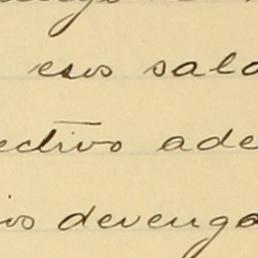 esos sala
ectivo ade
ios devenga